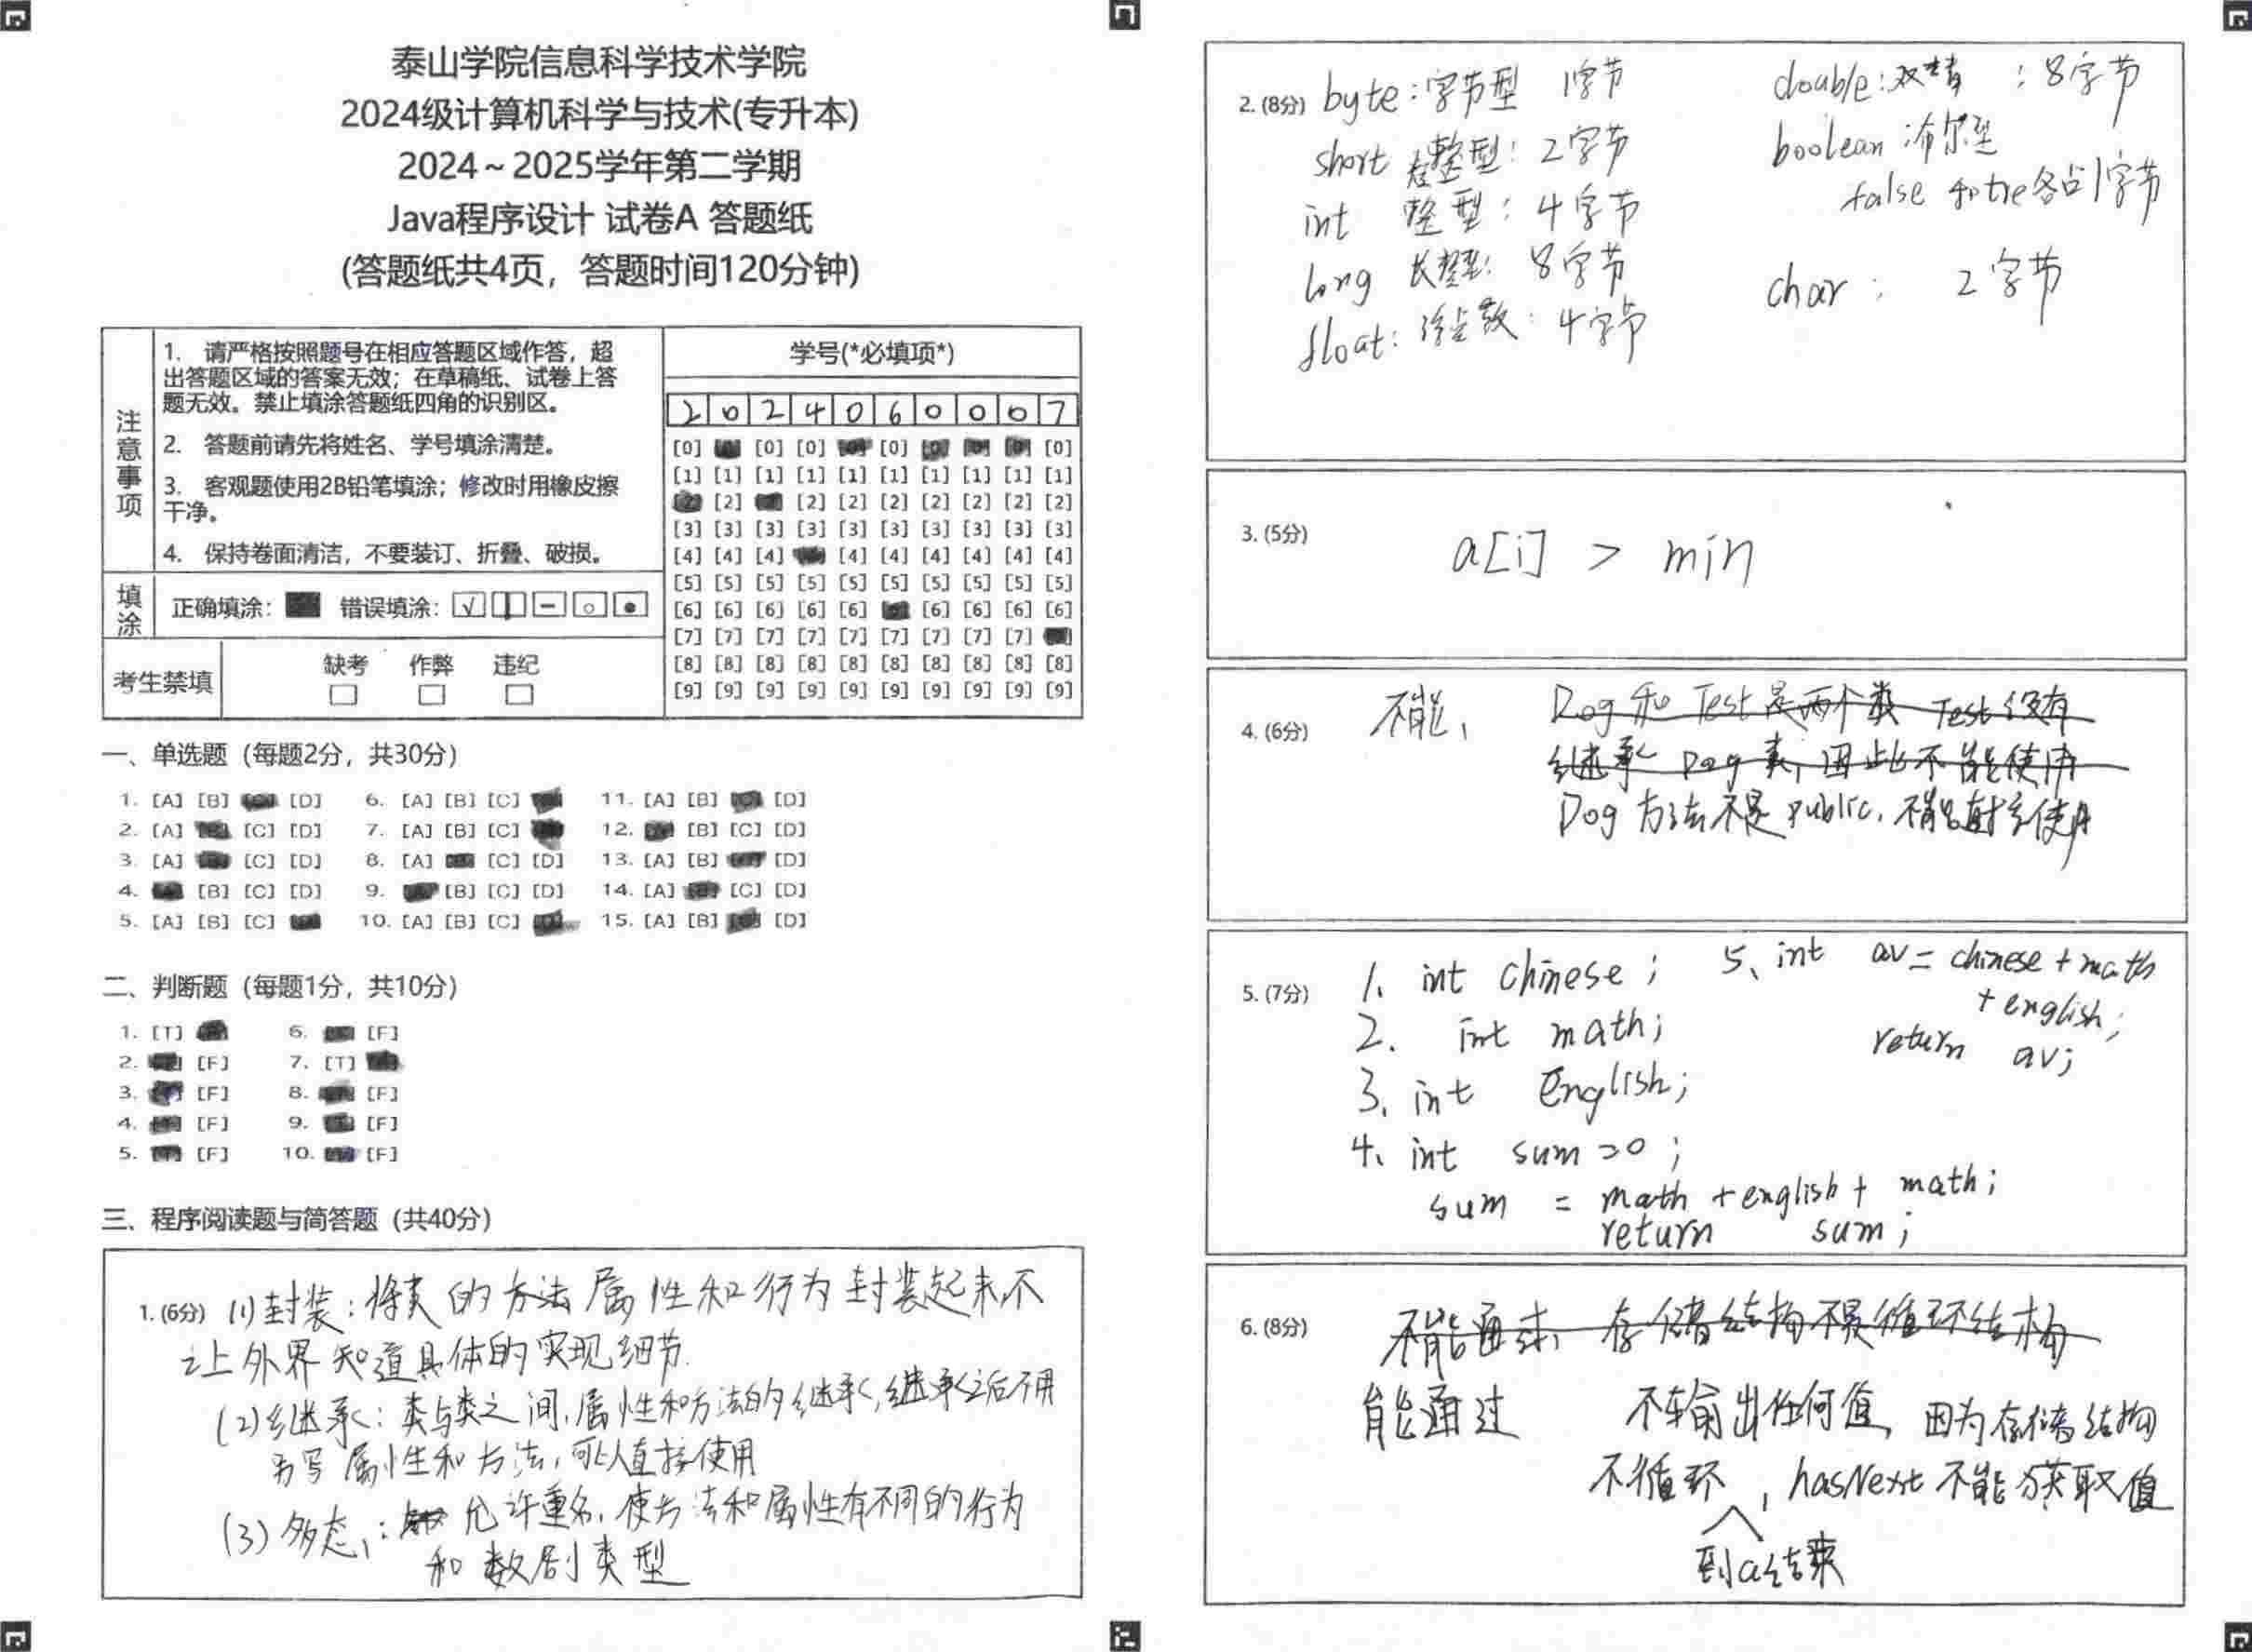 泰山学院信息科学技术学院
2024级计算机科学与技术(专升本)
2024～2025学年第二学期
Java程序设计 试卷A 答题纸
(答题纸共4页，答题时间120分钟)
注意事项
1. 请严格按照题号在相应答题区域作答，超
出答题区域的答案无效；在草稿纸、试卷上答
题无效。禁止填涂答题纸四角的识别区。
2. 答题前请先将姓名、学号填涂清楚。
3. 客观题使用2B铅笔填涂；修改时用橡皮擦
干净。
4. 保持卷面清洁，不要装订、折叠、破损。
填涂
正确填涂： 错误填涂：
考生禁填
缺考 作弊 违纪
学号(*必填项*)
2 0 2 4 0 6 0 0 0 7
[0] [0] [0] [0] [0]
[1] [1] [1] [1] [1] [1] [1] [1] [1] [1]
[2] [2] [2] [2] [2] [2] [2] [2] [2]
[3] [3] [3] [3] [3] [3] [3] [3] [3] [3]
[4] [4] [4] [4] [4] [4] [4] [4] [4]
[5] [5] [5] [5] [5] [5] [5] [5] [5] [5]
[6] [6] [6] [6] [6] [6] [6] [6] [6]
[7] [7] [7] [7] [7] [7] [7] [7] [7]
[8] [8] [8] [8] [8] [8] [8] [8] [8] [8]
[9] [9] [9] [9] [9] [9] [9] [9] [9] [9]
一、单选题（每题2分，共30分）
1. [A] [B] [D] 6. [A] [B] [C] 11. [A] [B] [D]
2. [A] [C] [D] 7. [A] [B] [C] 12. [B] [C] [D]
3. [A] [C] [D] 8. [A] [C] [D] 13. [A] [B] [D]
4. [B] [C] [D] 9. [B] [C] [D] 14. [A] [C] [D]
5. [A] [B] [C] 10. [A] [B] [C] 15. [A] [B] [D]
二、判断题（每题1分，共10分）
1. [T] 6. [F]
2. [F] 7. [T]
3. [F] 8. [F]
4. [F] 9. [F]
5. [F] 10. [F]
三、程序阅读题与简答题（共40分）
1. (6分) (1)封装：将类的方法属性和行为封装起来不
让外界知道具体的实现细节.
(2)继承：类与类之间,属性和方法的继承,继承之后不用
书写属性和方法,可以直接使用
(3)多态,: 允许重名,使方法和属性有不同的行为
和数剧类型
2. (8分) byte：字节型 1字节
short 短整型：2字节
int 整型：4字节
long 长整型：8字节
float：浮点数：4字节
double：双精 ：8字节
boolean：布尔型
false 和tre各占1字节
char： 2字节
3. (5分) a[i] > min
4. (6分) 不能, Dog和Test是两个类 Test没有
继承Dog类,因此不能使用
Dog方法不是public,不能对它使用
5. (7分) 1、int chinese;
2. int math;
3、int English;
4、int sum=0;
sum = math + english + math;
return sum;
5、int av = chinese + math
+ english;
return av;
6. (8分) 不能通过, 存储结构不是循环结构
能通过 不输出任何值, 因为存储结构
不循环, hasNext不能获取值
到a结束